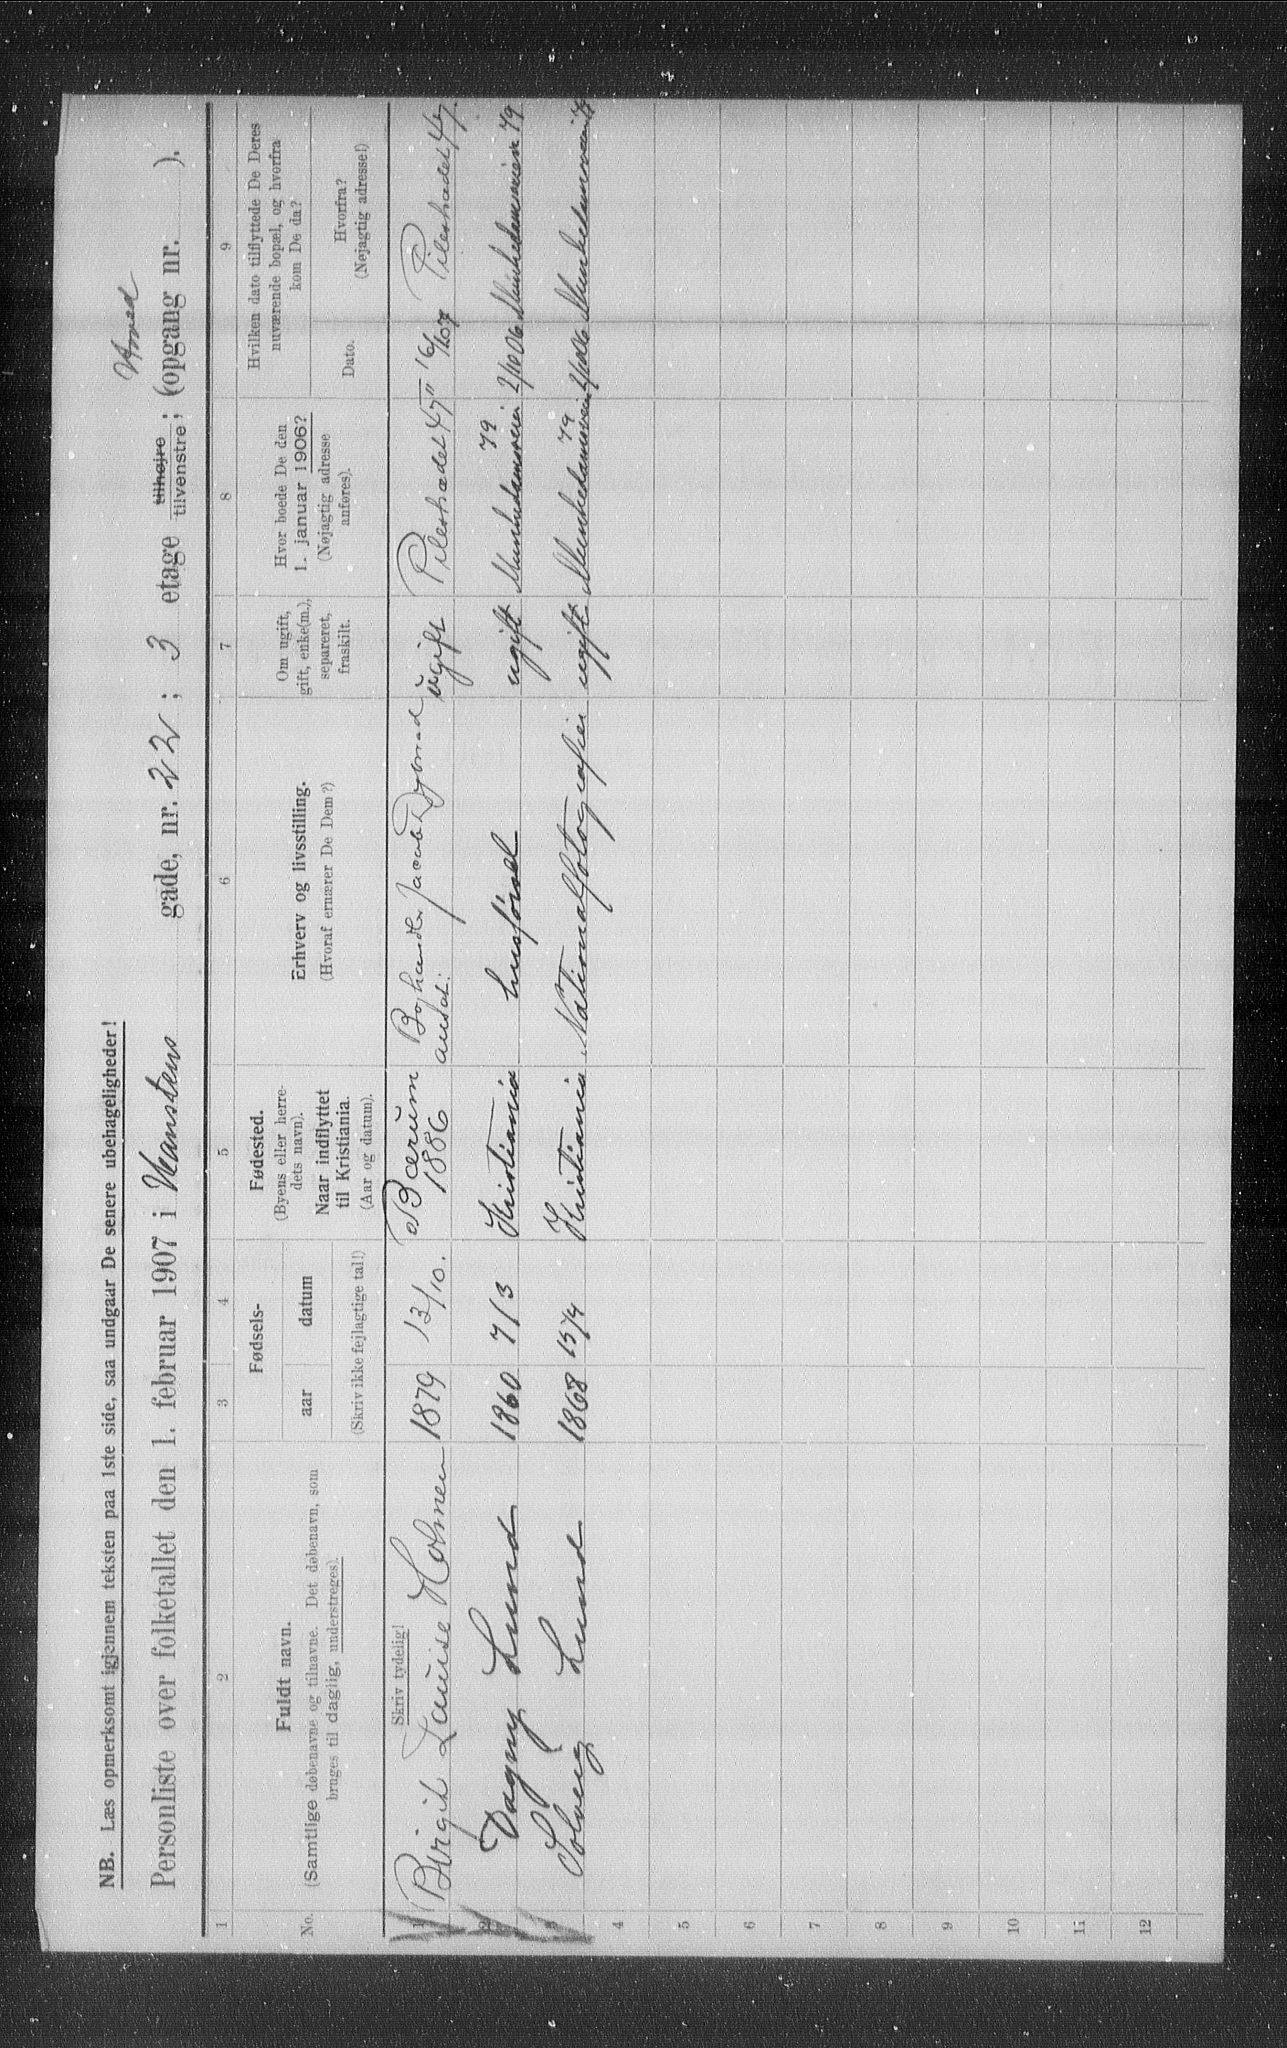 NB. Læs opmerksomt igjennem teksten paa 1ste side, saa undgaar De senere ubehageligheder!
Personliste over folketallet den 1. februar 1907 i Hanstens gade, nr. 22; 3 etage tilhøjre tilvenstre; (opgang nr. ).
1 2 3 4 5 6 7 8 9
No.
Fuldt navn.
(Samtlige døbenavne og tilnavne. Det døbenavn, som
bruges til daglig, understreges).
Fødsels-
aar datum
(Skriv ikke fejlagtige tal!)
Fødested.
(Byens eller herre-
dets navn).
Naar indflyttet
til Kristiania.
(Aar og datum).
Erhverv og livsstilling.
(Hvoraf ernærer De Dem?)
Om ugift,
gift, enke(m.),
separeret,
fraskilt.
Hvor boede De den
1. januar 1906?
(Nøjagtig adresse
anføres).
Hvilken dato tilflyttede De Deres
nuværende bopæl, og hvorfra
kom De da?
Dato.
Hvorfra?
(Nøjagtig adresse!)
Skriv tydelig!
1 Birgit Lauise Holmen 1879 13/10. Bærum 1886 Boghandler Jacob Dybwad ansat. ugift Pilestrædet 47 II Pilestrædet 47.
2 Dagny Lund 1860 7/3 Kristiania husførsel ugift Munkedamsveien 79 2/10 06 Munkedamsveien 79
3 Solveig Lund 1868 15/4 Kristiania Nationalfotografier ugift Munkedamsveien 79 2/10 06 Munkedamsveien 79
4
5
6
7
8
9
10
11
12